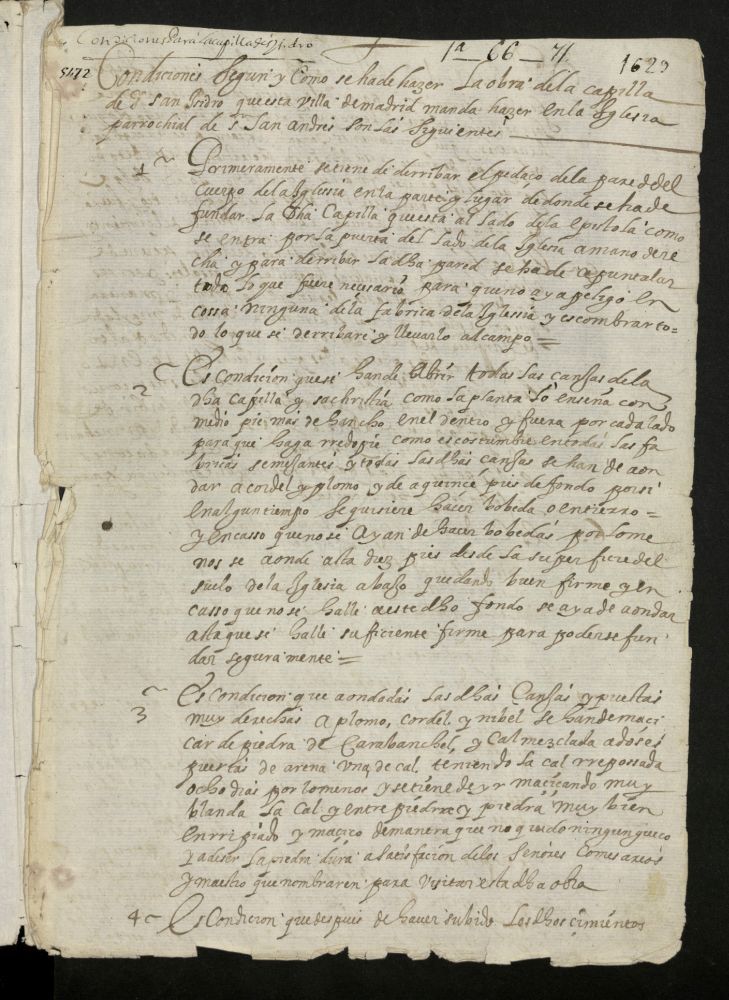 Condiciones Para la capilla de sn Isidro
1ª — 66 — 71
1629
5472
Condiciones Segun y Como se ha de hazer La obra de la capilla
de Sr San Isidro que esta villa de madrid manda hazer en la Iglesia
parrochial de Sr San Andres son las siguientes
1 Primeramente se tiene de derribar el pedaço de la pared del
Cuerpo de la Iglesia en la parte y lugar de donde se ha de
fundar La dha Capilla que esta al lado de la epistola como
se entra por la puerta del lado de la Iglesia a mano dere
cha y para derribar la dha pared se ha de apuntalar
todo lo que fuere necesario para que no aya peligo en
cossa ninguna de la fabrica de la Iglesia y escombrar to=
do lo que se derribare y llevarlo al campo =
2 Es condicion que se hande Abrir todas las canjas de la
dha Capilla y sachristia como la planta lo enseña con
medio pie mas de hancho en el dentro y fuera por cada lado
para que haga rredopie como es costumbre en todas las fa
bricas semejantes y todas las dhas canjas se han de aon
dar a cordel y plomo y de a quince pies de fondo por si
en algun tiempo se quisiere hacer bobeda o entierro =
y en casso que no se ayan de hacer bobedas por lo me
nos se aonde asta diez pies desde la superficie del
suelo de la Iglesia abajo quedando buen firme y en
casso que no se halle a este dho fondo se aya de aondar
asta que se halle suficiente firme para poderse fun
dar segura mente =
3 Es condicion que aondadas las dhas Canjas y puestas
muy derechas a plomo, cordel y nibel se han de maci
çar de piedra de Carabanchel, y Cal mezclada a dos es
puertas de arena una de cal, teniendo la cal rrepossada
ocho dias por lo menos y se tiene de yr maçiçando muy
blanda la cal y entre piedra y piedra muy bien
enrripiado y maçiço de manera que no quede ningun gueco
y a de ser la piedra dura a satisfacion de los Señores Comisarios
y maestro que nombraren para visitar esta dha obra
4 Es Condicion que despues de haver subido los dhos çimientos